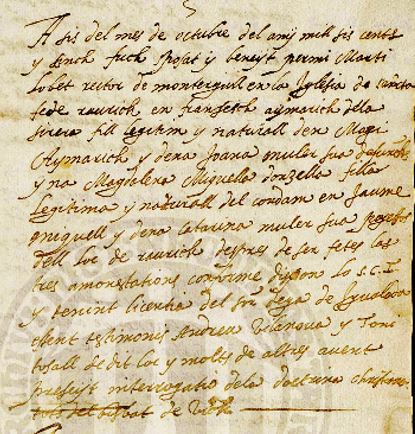 A sis del mes de octubre del any mil sis cents
y sinch fuch sposat y beneyt per mi Marti
Lobet rector de montergull en la Iglesia de sancta
fede raurich en fransesch aymarich dela
sirera fill legitim y naturall den Magi
Aymarich y dena Joana muler sua defuncts
y na Magdalena Miquella donzella filla
legitima y naturall del condam en Jaume
miquell y dena catarina muler sua
dell loc de raurich despres de ser fetes las
tres amonestations conforme dispon lo S.C.T
y tenint licentia del Dega de Igualada
essent testimonis Andreu vilanova y Joan
de dit loc y molts de altres avent
presehyt interrogatio dela doctrina christiana
tots del bisbat de vich